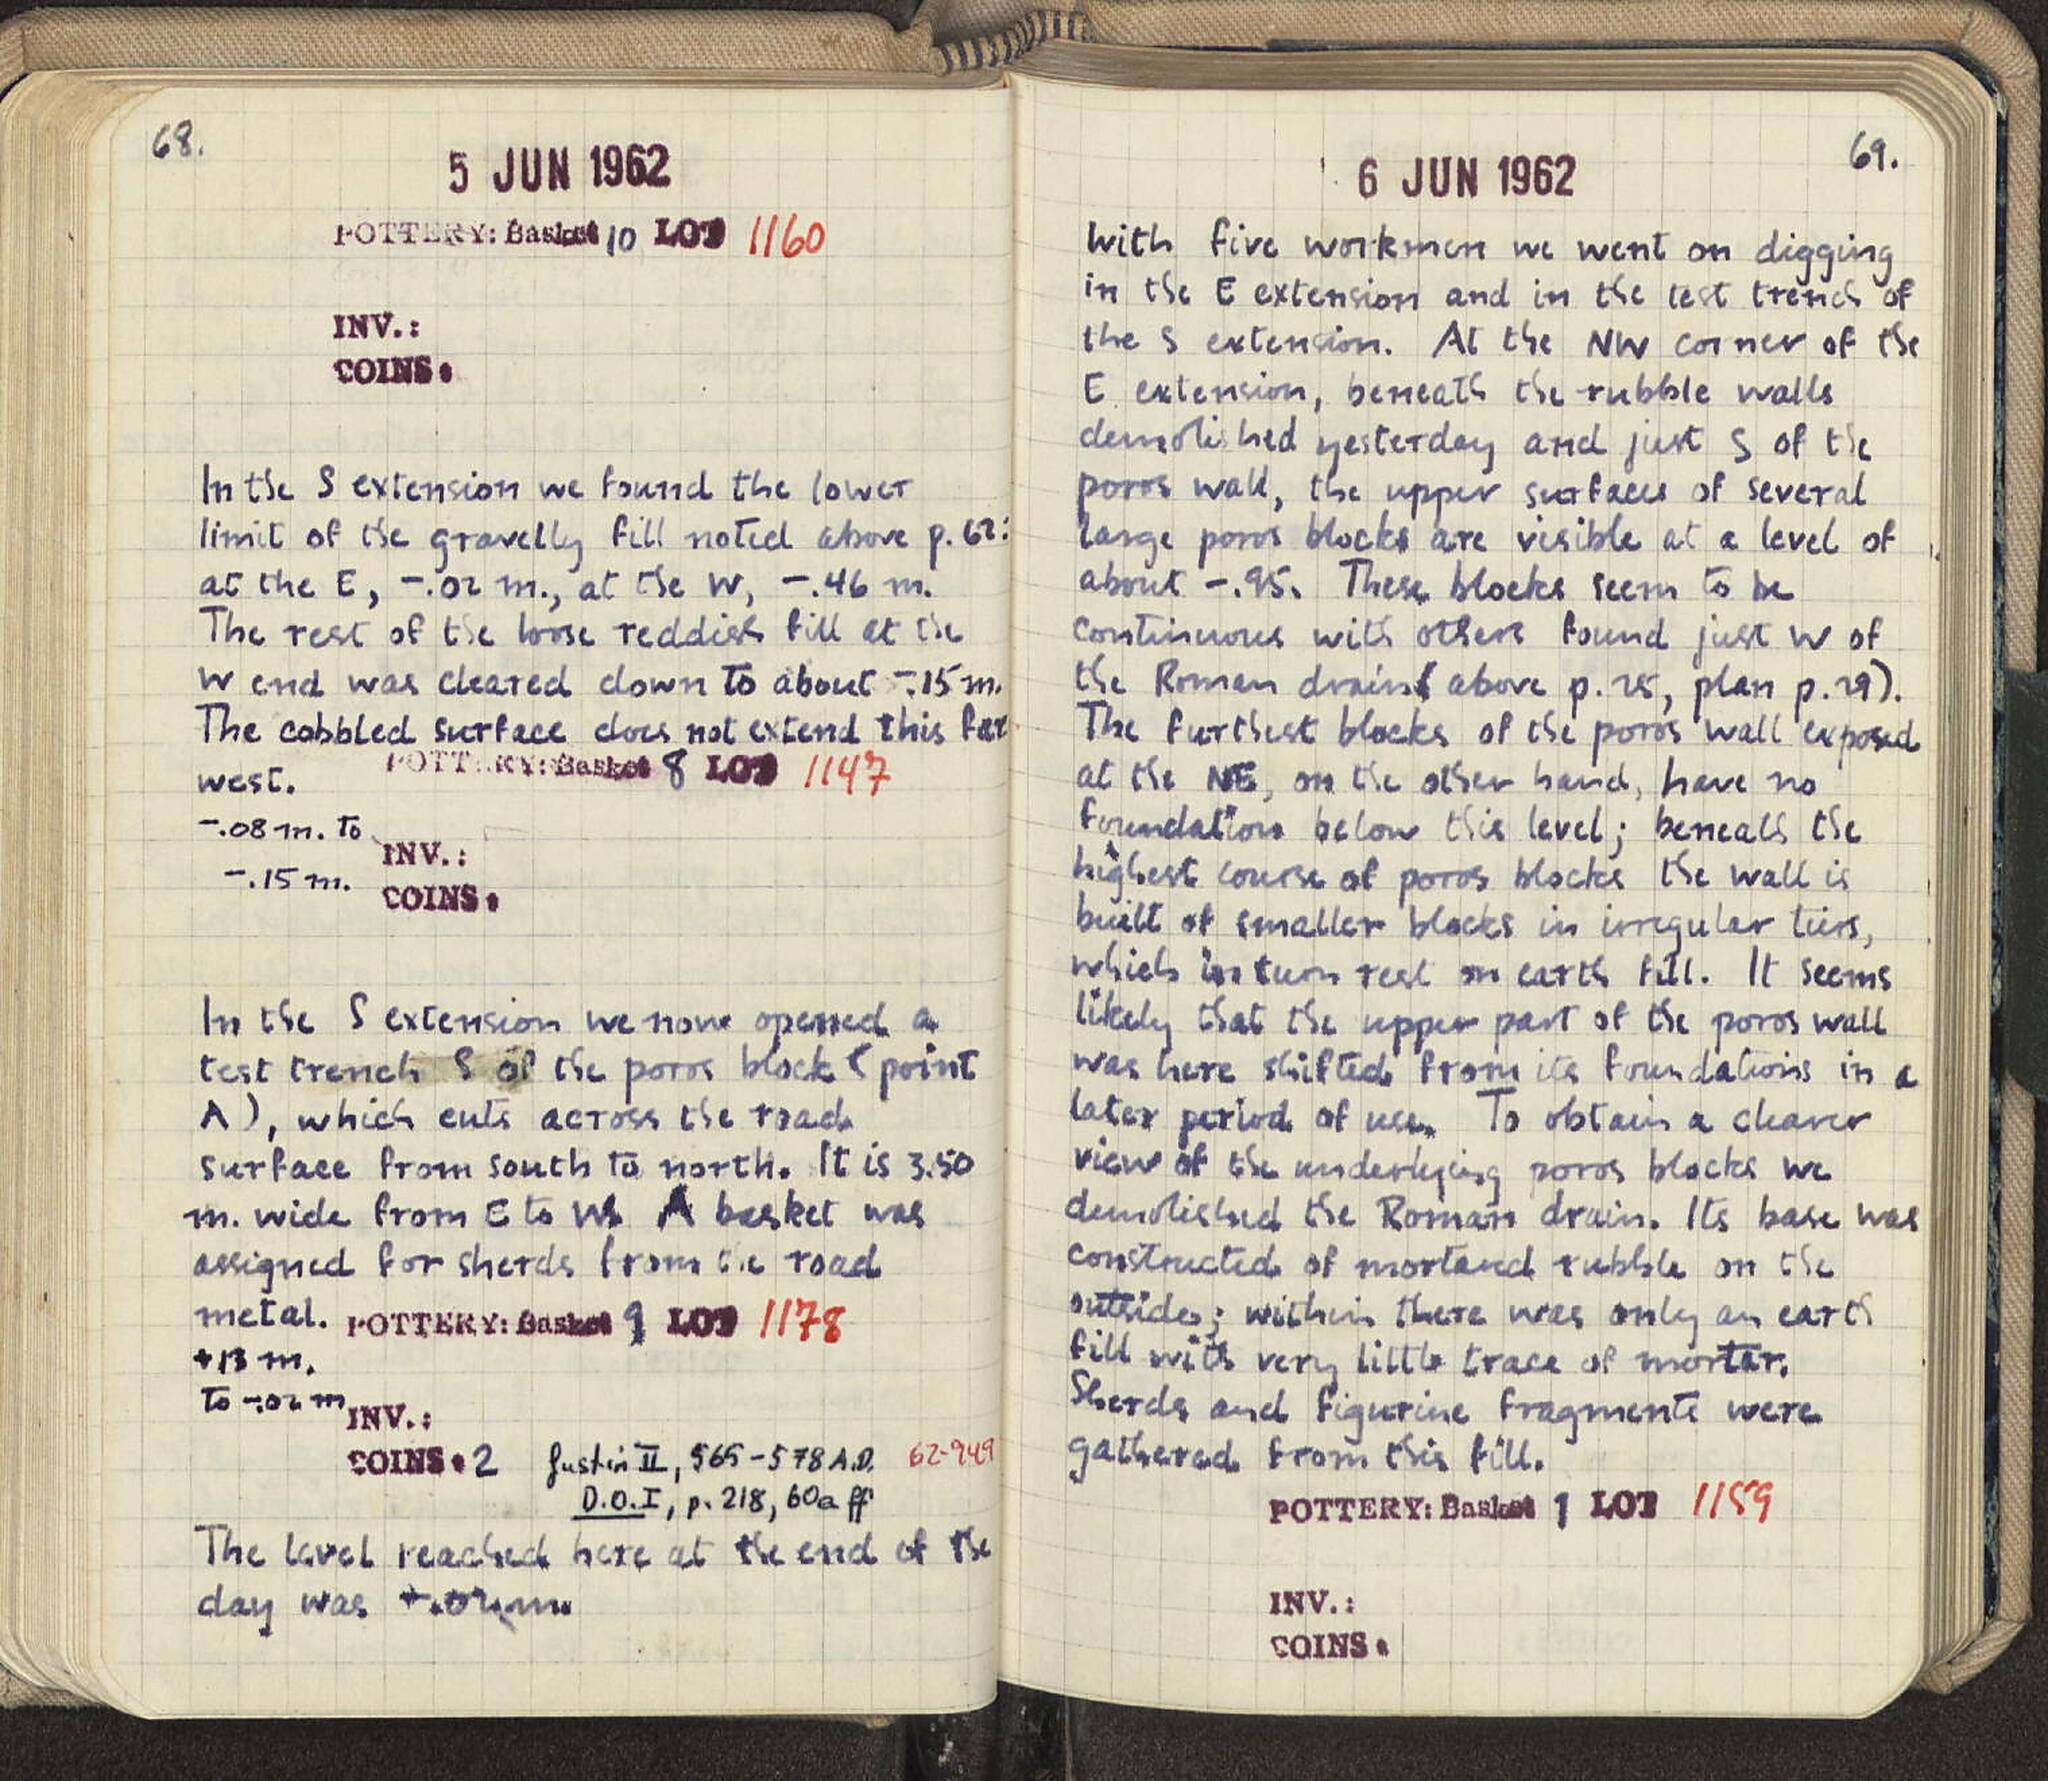 68.
5 JUN 1962
POTTERY: Basket 10 LOT 1160
INV.:
COINS:
In the S extension we found the lower
limit of the gravelly fill noted above p. 62:
at the E, -.02 m., at the W, -.46 m.
The rest of the loose reddish fill at the
W end was cleared down to about -.15 m.
The cobbled surface does not extend this far
west.
POTTERY: Basket 8 LOT 1147
-.08 m. to
-.15 m.
INV.:
COINS:
In the S extension we now opened a
test trench S of the poros block (point
A), which cuts across the road
surface from south to north. It is 3.50
m. wide from E to W. A basket was
assigned for sherds from the road
metal. POTTERY: Basket 9 LOT 1178
+13 m.
to -.02 m
INV.:
COINS: 2 Justin II, 565-578 A.D. 62-949
D.O. I, p. 218, 60a ff
The level reached here at the end of the
day was m.
69.
6 JUN 1962
With five workmen we went on digging
in the E extension and in the test trench of
the S extension. At the NW corner of the
E extension, beneath the rubble walls
demolished yesterday and just S of the
poros wall, the upper surfaces of several
large poros blocks are visible at a level of
about -.95. These blocks seem to be
continuous with others found just W of
the Roman drain (above p. 25, plan p. 29).
The furthest blocks of the poros wall exposed
at the NE, on the other hand, have no
foundation below this level; beneath the
highest course of poros blocks the wall is
built of smaller blocks in irregular tiers,
which in turn rest on earth fill. It seems
likely that the upper part of the poros wall
was here shifted from its foundations in a
later period of use. To obtain a clearer
view of the underlying poros blocks we
demolished the Roman drain. Its base was
constructed of mortared rubble on the
outside; within there was only an earth
fill with very little trace of mortar.
Sherds and figurine fragments were
gathered from this fill.
POTTERY: Basket 1 LOT 1159
INV.:
COINS: